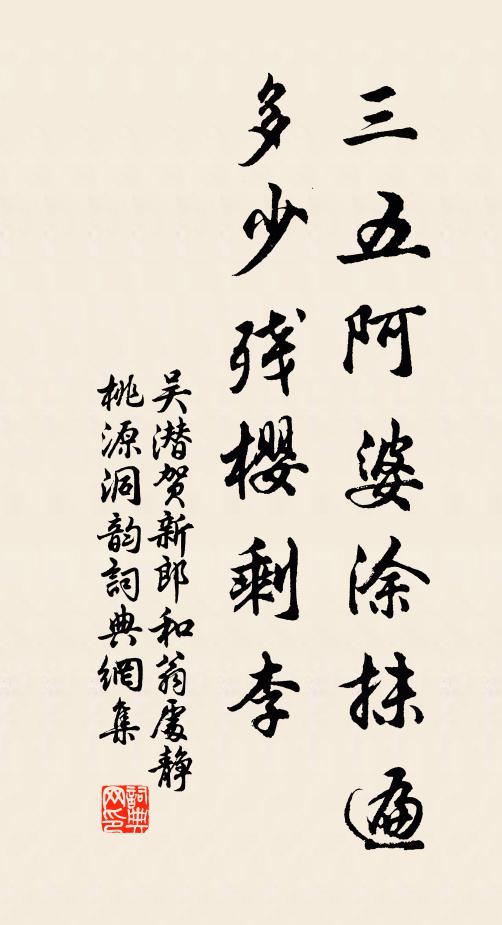 三五阿婆涂抹遍
多少残樱剩李
吴潜贺新郎和翁处静
桃源洞韵词典網集
詞典网印